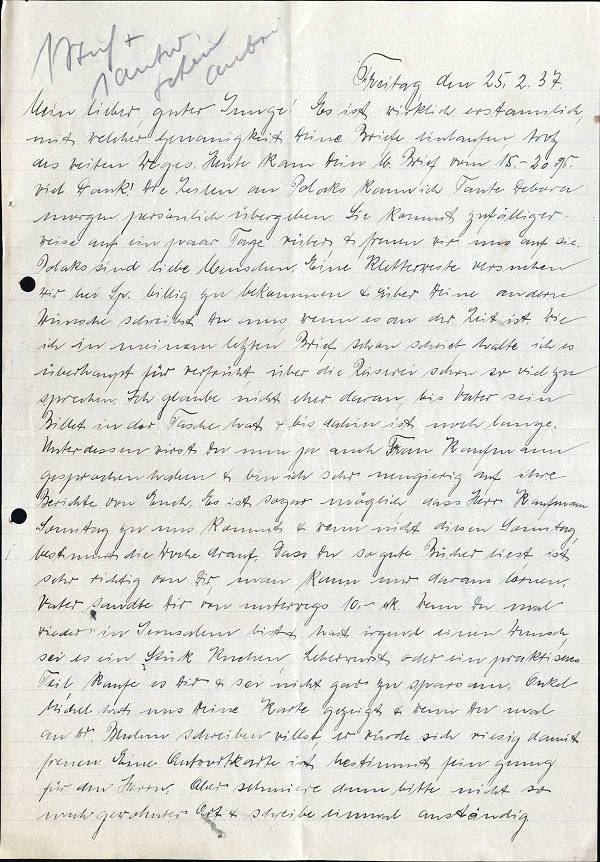 Freitag den 25.2.37.
Mein lieber guter Junge! Es ist wirklich erstaunlich,
mit welcher Genauigkeit Deine Briefe einlaufen trotz
des weiten Weges. Heute kam Dein lb. Brief vom 15.-20.
viel Dank! Die Zeilen an Polaks kann ich Tante Debora
morgen persönlich übergeben. Sie kommt zufälliger-
weise auf ein paar Tage rüber & freuen wir uns auf sie.
Polaks sind liebe Menschen. Eine Kletterweste versuchen
wir bei Sp. billig zu bekommen & über Deine andern
Wünsche schreibst Du uns, wenn es an der Zeit ist. Wie
ich in meinem letzten Brief schon schrieb, halte ich es
überhaupt für verfrüht, über die Reiserei schon so viel zu
sprechen. Ich glaube nicht eher daran, bis Vater sein
Billet in der Tasche hat & bis dahin ist noch lange.
Unterdessen wirst Du nun ja auch Frau Kaufmann
gesprochen haben & bin ich sehr neugierig auf ihre
Berichte von Euch. Es ist sogar möglich dass Herr Kaufmann
Sonntag zu uns kommt & wenn nicht diesen Sonntag,
bestimmt die Woche drauf. Dass Du so gute Bücher liest, ist
sehr richtig von Dir, man kann nur daraus lernen.
Vater sandte Dir von unterwegs 10.- Mk. Wenn Du mal
wieder in Jerusalem bist & hast irgend einen Wunsch,
sei es ein Stück Kuchen, Leberwurst oder ein praktisches
Teil, kaufe es Dir & sei nicht gar zu sparsam. Onkel
Michel hat uns Deine Karte gezeigt & wenn Du mal
an Dr. schreiben willst, er würde sich riesig damit
freuen. Eine Antwortkarte ist bestimmt fein genug
für den Herrn. Aber schmiere dann bitte nicht so
nach gewohnter Art & schreibe einmal anständig